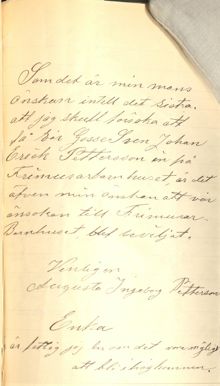 Som det är min mans
önskan intill det sista
att jag skull försöka att
få Er Gosse Sven Johan
Erick Pettersson in på
Frimurarbarnhuset, är det
äfven min önskan att vår
ansökan till Frimurar-
Barnhuset blef beviljat.
Venligen
Augusta Ingeborg Petterson
Enka
är fattig jag ber om det vore möjligt
att bli ihågkommen.